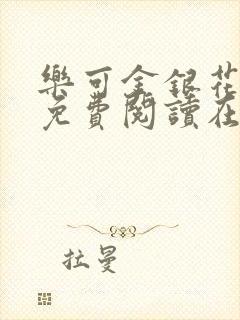 樂可金銀花
免費閱讀在
拉曼